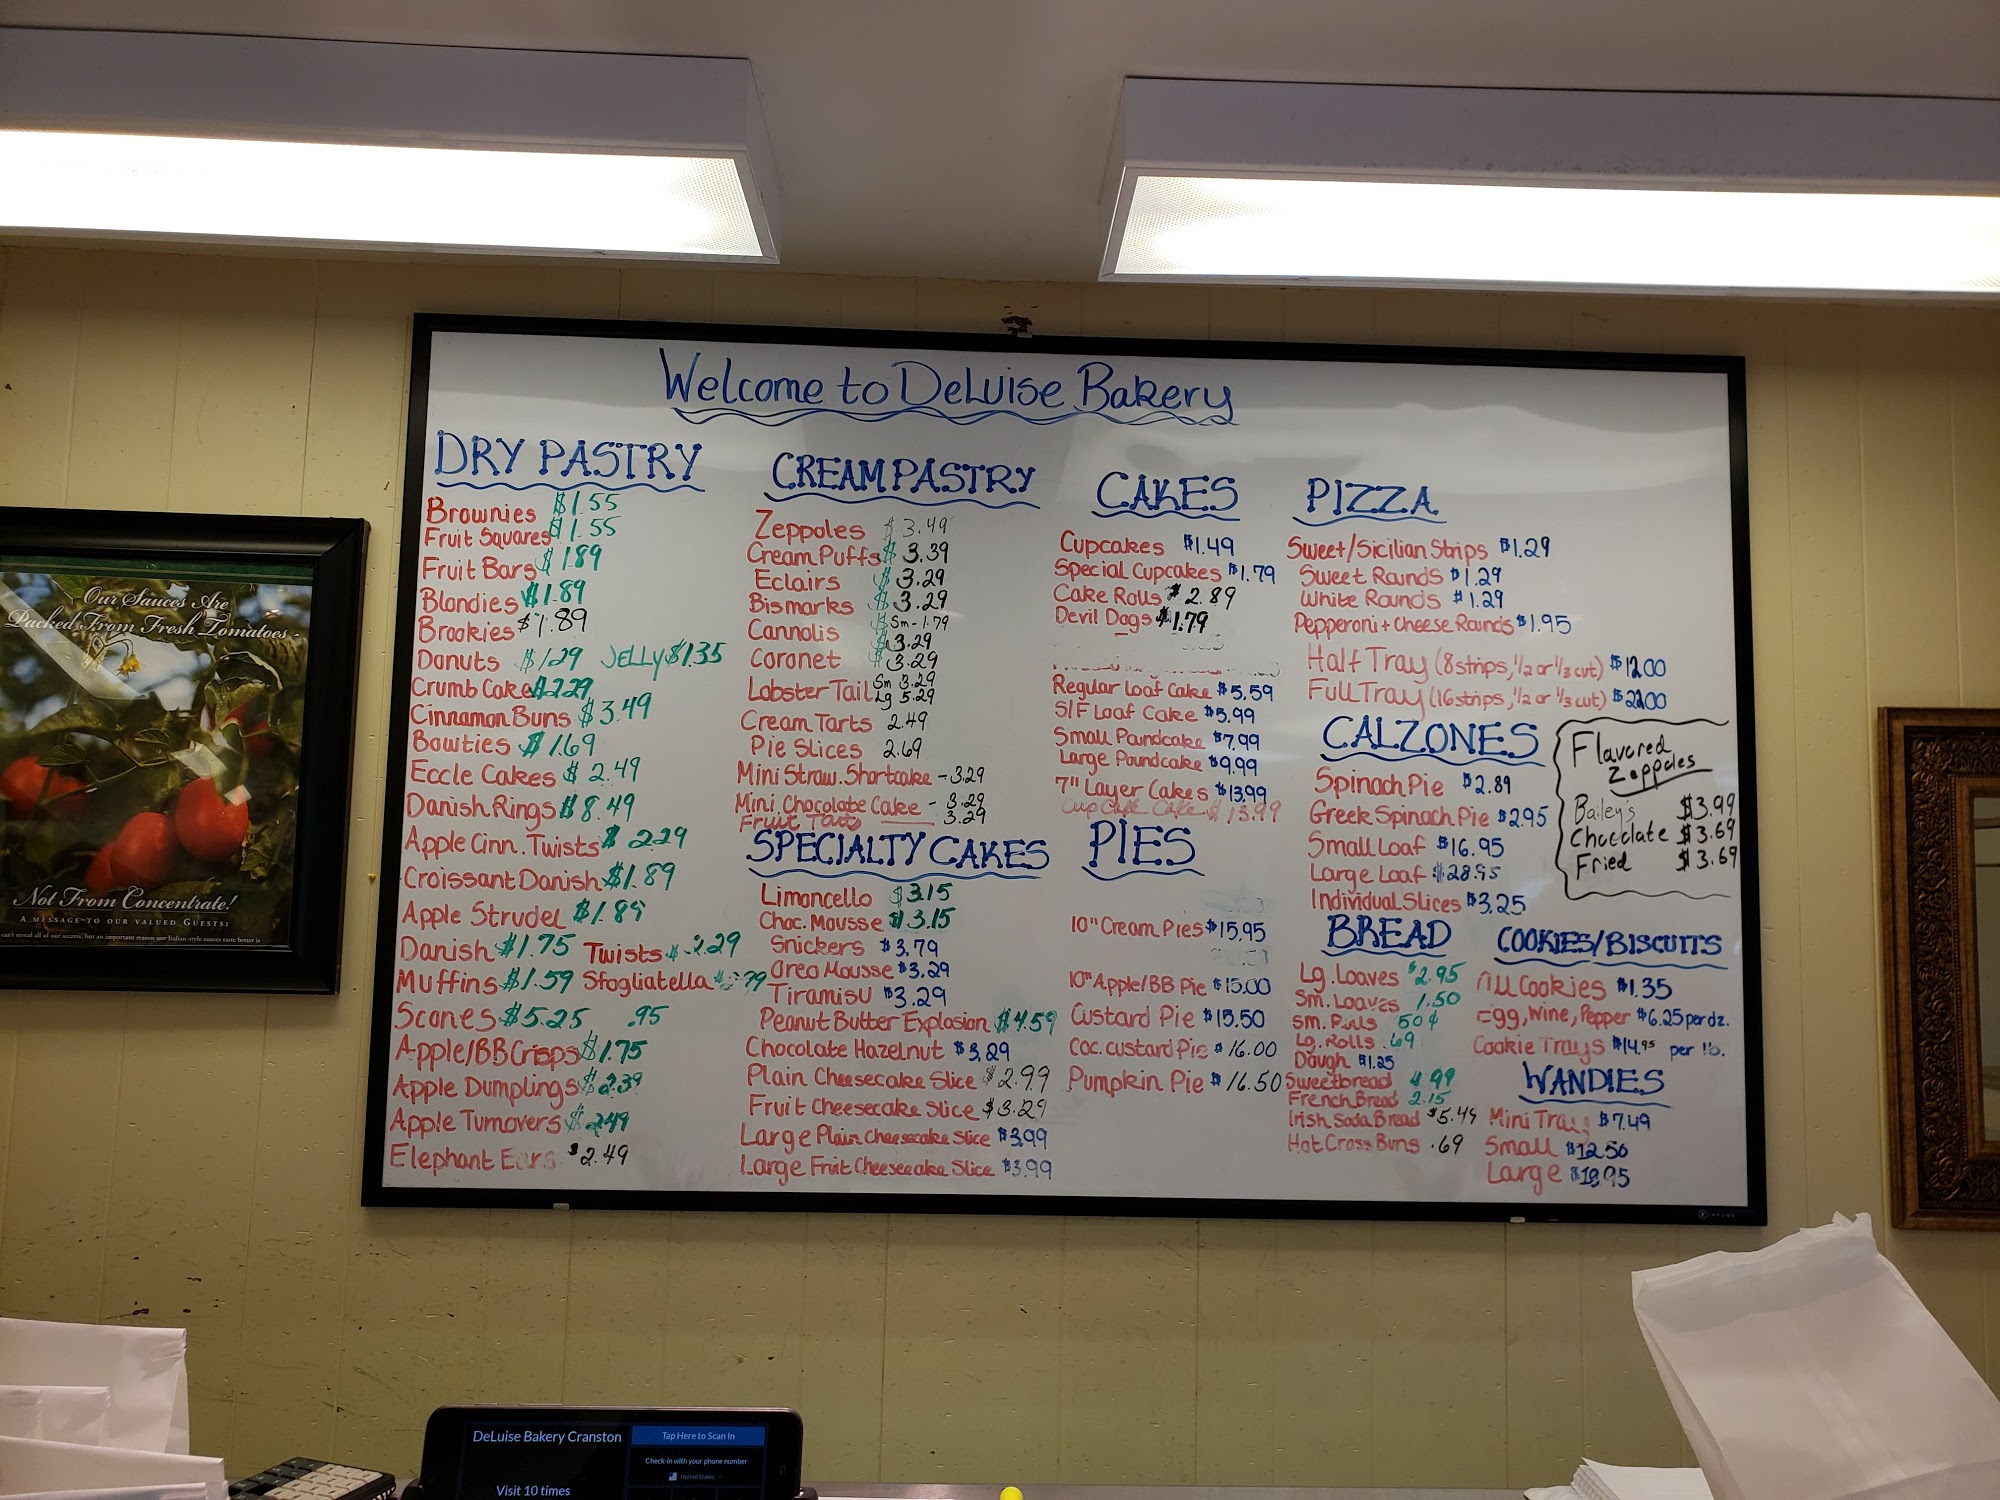 Welcome to DeLuise Bakery
DRY PASTRY
Brownies $1.55
Fruit Squares $1.55
Fruit Bars $1.89
Blondies $1.89
Brookies $1.89
Donuts $1.29 JELLY $1.35
Crumb Cake $2.29
Cinnamon Buns $3.49
Bowties $1.69
Eccle Cakes $2.49
Danish Rings $8.49
Apple Cinn. Twists $2.29
Croissant Danish $1.89
Apple Strudel $1.89
Danish $1.75 Twists $2.29
Muffins $1.59 Sfogliatella
Scones $5.25 .95
Apple/BB Crisps $1.75
Apple Dumplings $2.39
Apple Turnovers $2.49
Elephant Ears $2.49
CREAM PASTRY
Zeppoles $3.49
Cream Puffs $3.39
Eclairs $3.29
Bismarks $3.29
Cannolis $ Sm-1.79
$3.29
Coronet $3.29
Lobster Tail Sm 3.29
Lg 5.29
Cream Tarts 2.49
Pie Slices 2.69
Mini Straw. Shortcake - 3.29
Mini Chocolate Cake - 3.29
Fruit Tarts 3.29
SPECIALTY CAKES
Limoncello $3.15
Choc. Mousse $3.15
Snickers $3.79
Oreo Mousse $3.29
Tiramisu $3.29
Peanut Butter Explosion $4.59
Chocolate Hazelnut $3.29
Plain Cheesecake Slice $2.99
Fruit Cheesecake Slice $3.29
Large Plain Cheesecake Slice $3.99
Large Fruit Cheesecake Slice $3.99
CAKES
Cupcakes $1.49
Special Cupcakes $1.79
Cake Rolls $2.89
Devil Dogs $1.79
Regular Loaf Cake $5.59
S/F Loaf Cake $5.99
Small Poundcake $7.99
Large Poundcake $9.99
7" Layer Cakes $13.99
Cup Cake Cake $13.99
PIES
10" Cream Pies $15.95
10" Apple/BB Pie $15.00
Custard Pie $15.50
Coc. Custard Pie $16.00
Pumpkin Pie $16.50
PIZZA
Sweet/Sicilian Strips $1.29
Sweet Rounds $1.29
White Rounds $1.29
Pepperoni + Cheese Rounds $1.95
Half Tray (8 strips, 1/2 or 1/3 cut) $12.00
Full Tray (16 strips, 1/2 or 1/3 cut) $22.00
CALZONES
Spinach Pie $2.89
Greek Spinach Pie $2.95
Small Loaf $16.95
Large Loaf $28.95
Individual Slices $3.25
Flavored
Zeppoles
Bailey's $3.99
Chocolate $3.69
Fried $3.69
BREAD
Lg. Loaves $2.95
Sm. Loaves 1.50
Sm. Rolls 50¢
Lg. Rolls .69
Dough $1.25
Sweetbread 4.99
French Bread 2.15
Irish Soda Bread $5.49
Hot Cross Buns .69
COOKIES/BISCUITS
All Cookies $1.35
Egg, Wine, Pepper $6.25 per dz.
Cookie Trays $14.95 per lb.
WANDIES
Mini Trays $7.49
Small $12.50
Large
Our Sauces Are
Packed From Fresh Tomatoes -
Not From Concentrate!
A MESSAGE TO OUR VALUED GUESTS:
can't reveal all of our secrets, but an important reason our Italian-style sauces taste better is
DeLuise Bakery Cranston
Tap Here to Scan In
Check-in with your phone number
United States
Visit 10 times